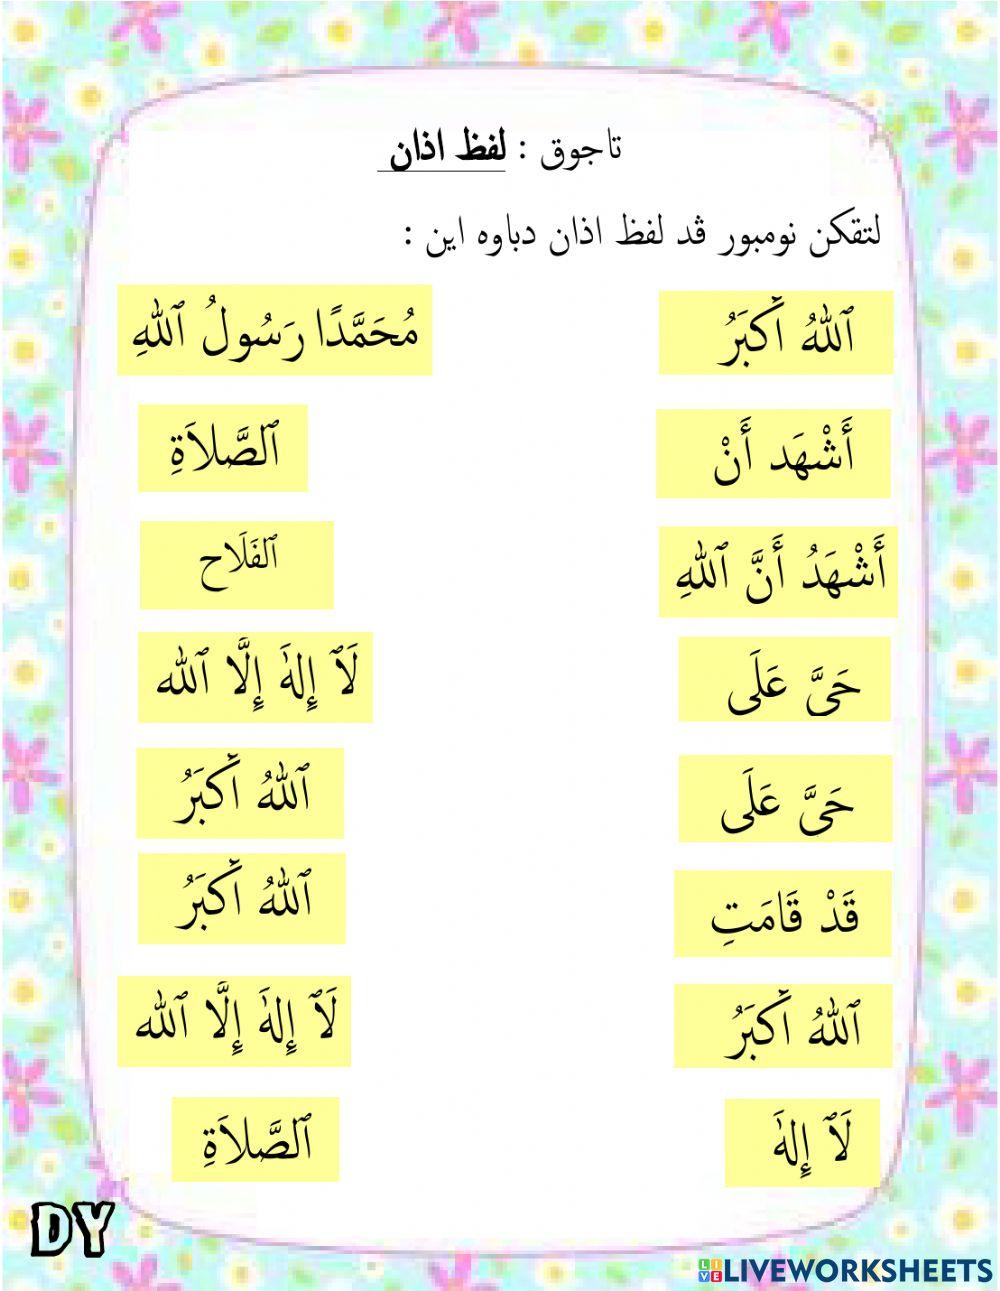 تاجوق : لفظ اذان
لتقكن نومبور ڤد لفظ اذان دباوه اين :
ٱللهُ أَكْبَرُ
مُحَمَّدًا رَسُولُ ٱللهِ
أَشْهَد أَنْ
ٱلصَّلاَةِ
أَشْهَدُ أَنَّ ٱللهِ
ٱلفَلَاح
حَىَّ عَلَى
لَآ إِلهَٰ إِلَّا ٱلله
حَىَّ عَلَى
ٱللهُ أَكْبَرُ
قَدْ قَامَتِ
ٱللهُ أَكْبَرُ
ٱللهُ أَكْبَرُ
لَآ إِلهَٰ إِلَّا ٱلله
لَآ إِلهَٰ
ٱلصَّلاَةِ
DY
LIVEWORKSHEETS